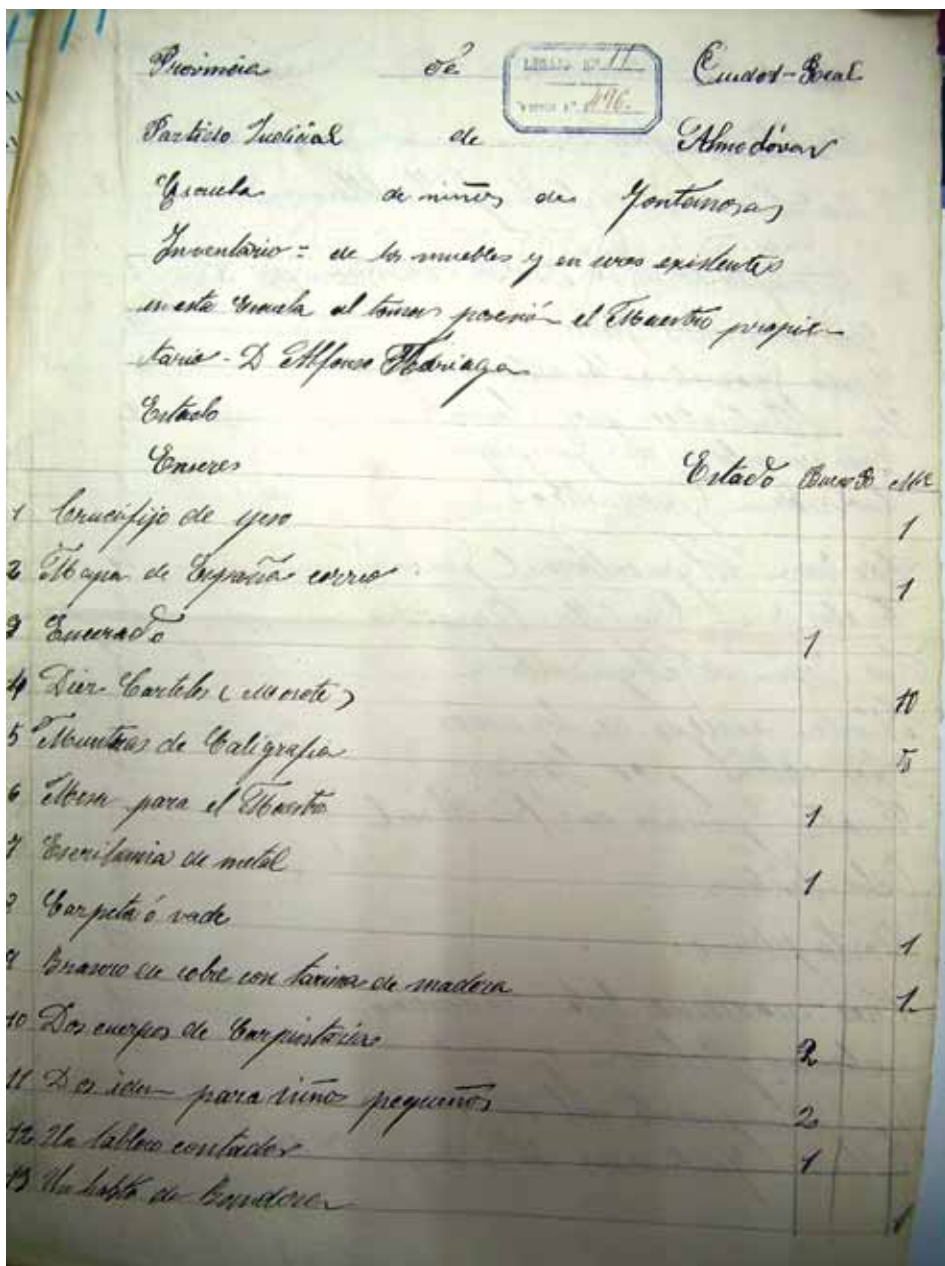 Provincia de Ciudad-Real
LEGAJO Nº 11
Nº 496.
Partido Judicial de Almodóvar
Escuela de niños de Fontanosas
Inventario = de los muebles y en seres existentes
en esta Escuela al tomar posesión el Maestro propie-
tario - D Alfonso Madriaga
Estado
Enseres Estado Bueno R Mal
1 Crucifijo de yeso 1
2 Mapa de España 1
3 Encerado 1
4 Diez Carteles ( ) 10
5 Muestras de Caligrafia 5
6 Mesa para el Maestro 1
7 Escribania de metal 1
8 Carpeta ó vade 1
9 Brasero de cobre con tarima de madera 1
10 Dos cuerpos de Carpinteria 2
11 Dos idem para niños pequeños 2
12 Un tablero contador 1
13 Un de 1